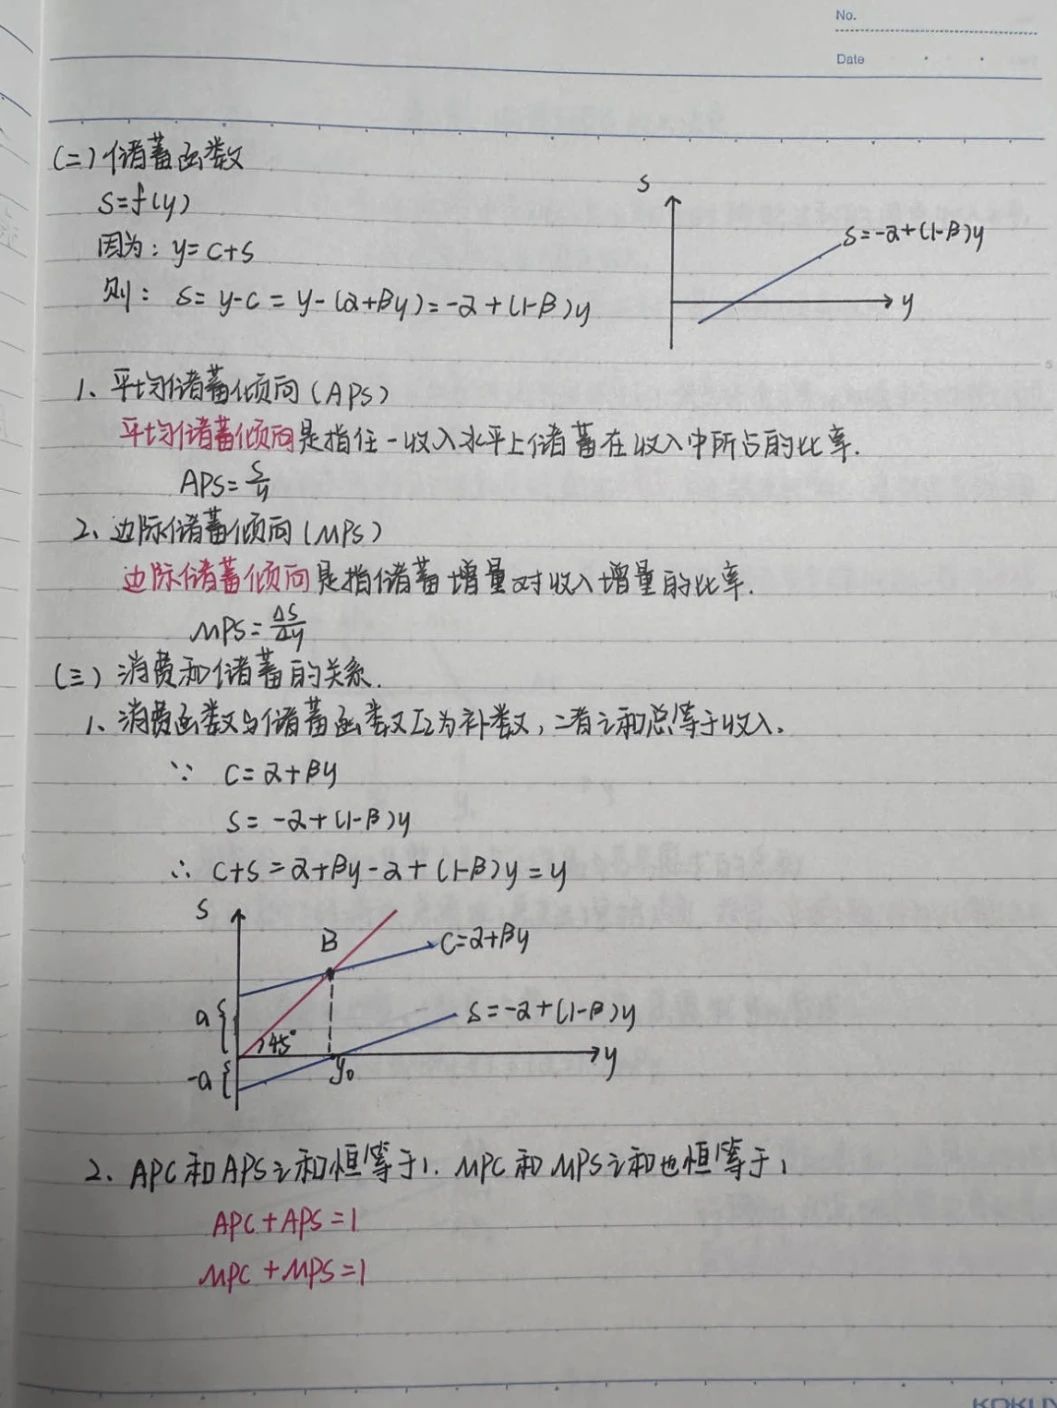 No.
Date
(二)储蓄函数
s=f(y)
因为: y=c+s
则: s=y-c=y-(α+βy)=-α+(1-β)y
s
s=-α+(1-β)y
y
1、平均储蓄倾向(APS)
平均储蓄倾向是指任一收入水平上储蓄在收入中所占的比率.
APS=s/y
2、边际储蓄倾向(MPS)
边际储蓄倾向是指储蓄增量对收入增量的比率.
MPS=Δs/Δy
(三)消费和储蓄的关系.
1、消费函数与储蓄函数互为补数,二者之和总等于收入.
∵ c=α+βy
s=-α+(1-β)y
∴ c+s=α+βy-α+(1-β)y=y
s
B
c=α+βy
a
s=-α+(1-β)y
45°
y
-a
y₀
2、APC和APS之和恒等于1. MPC和MPS之和也恒等于1
APC+APS=1
MPC+MPS=1